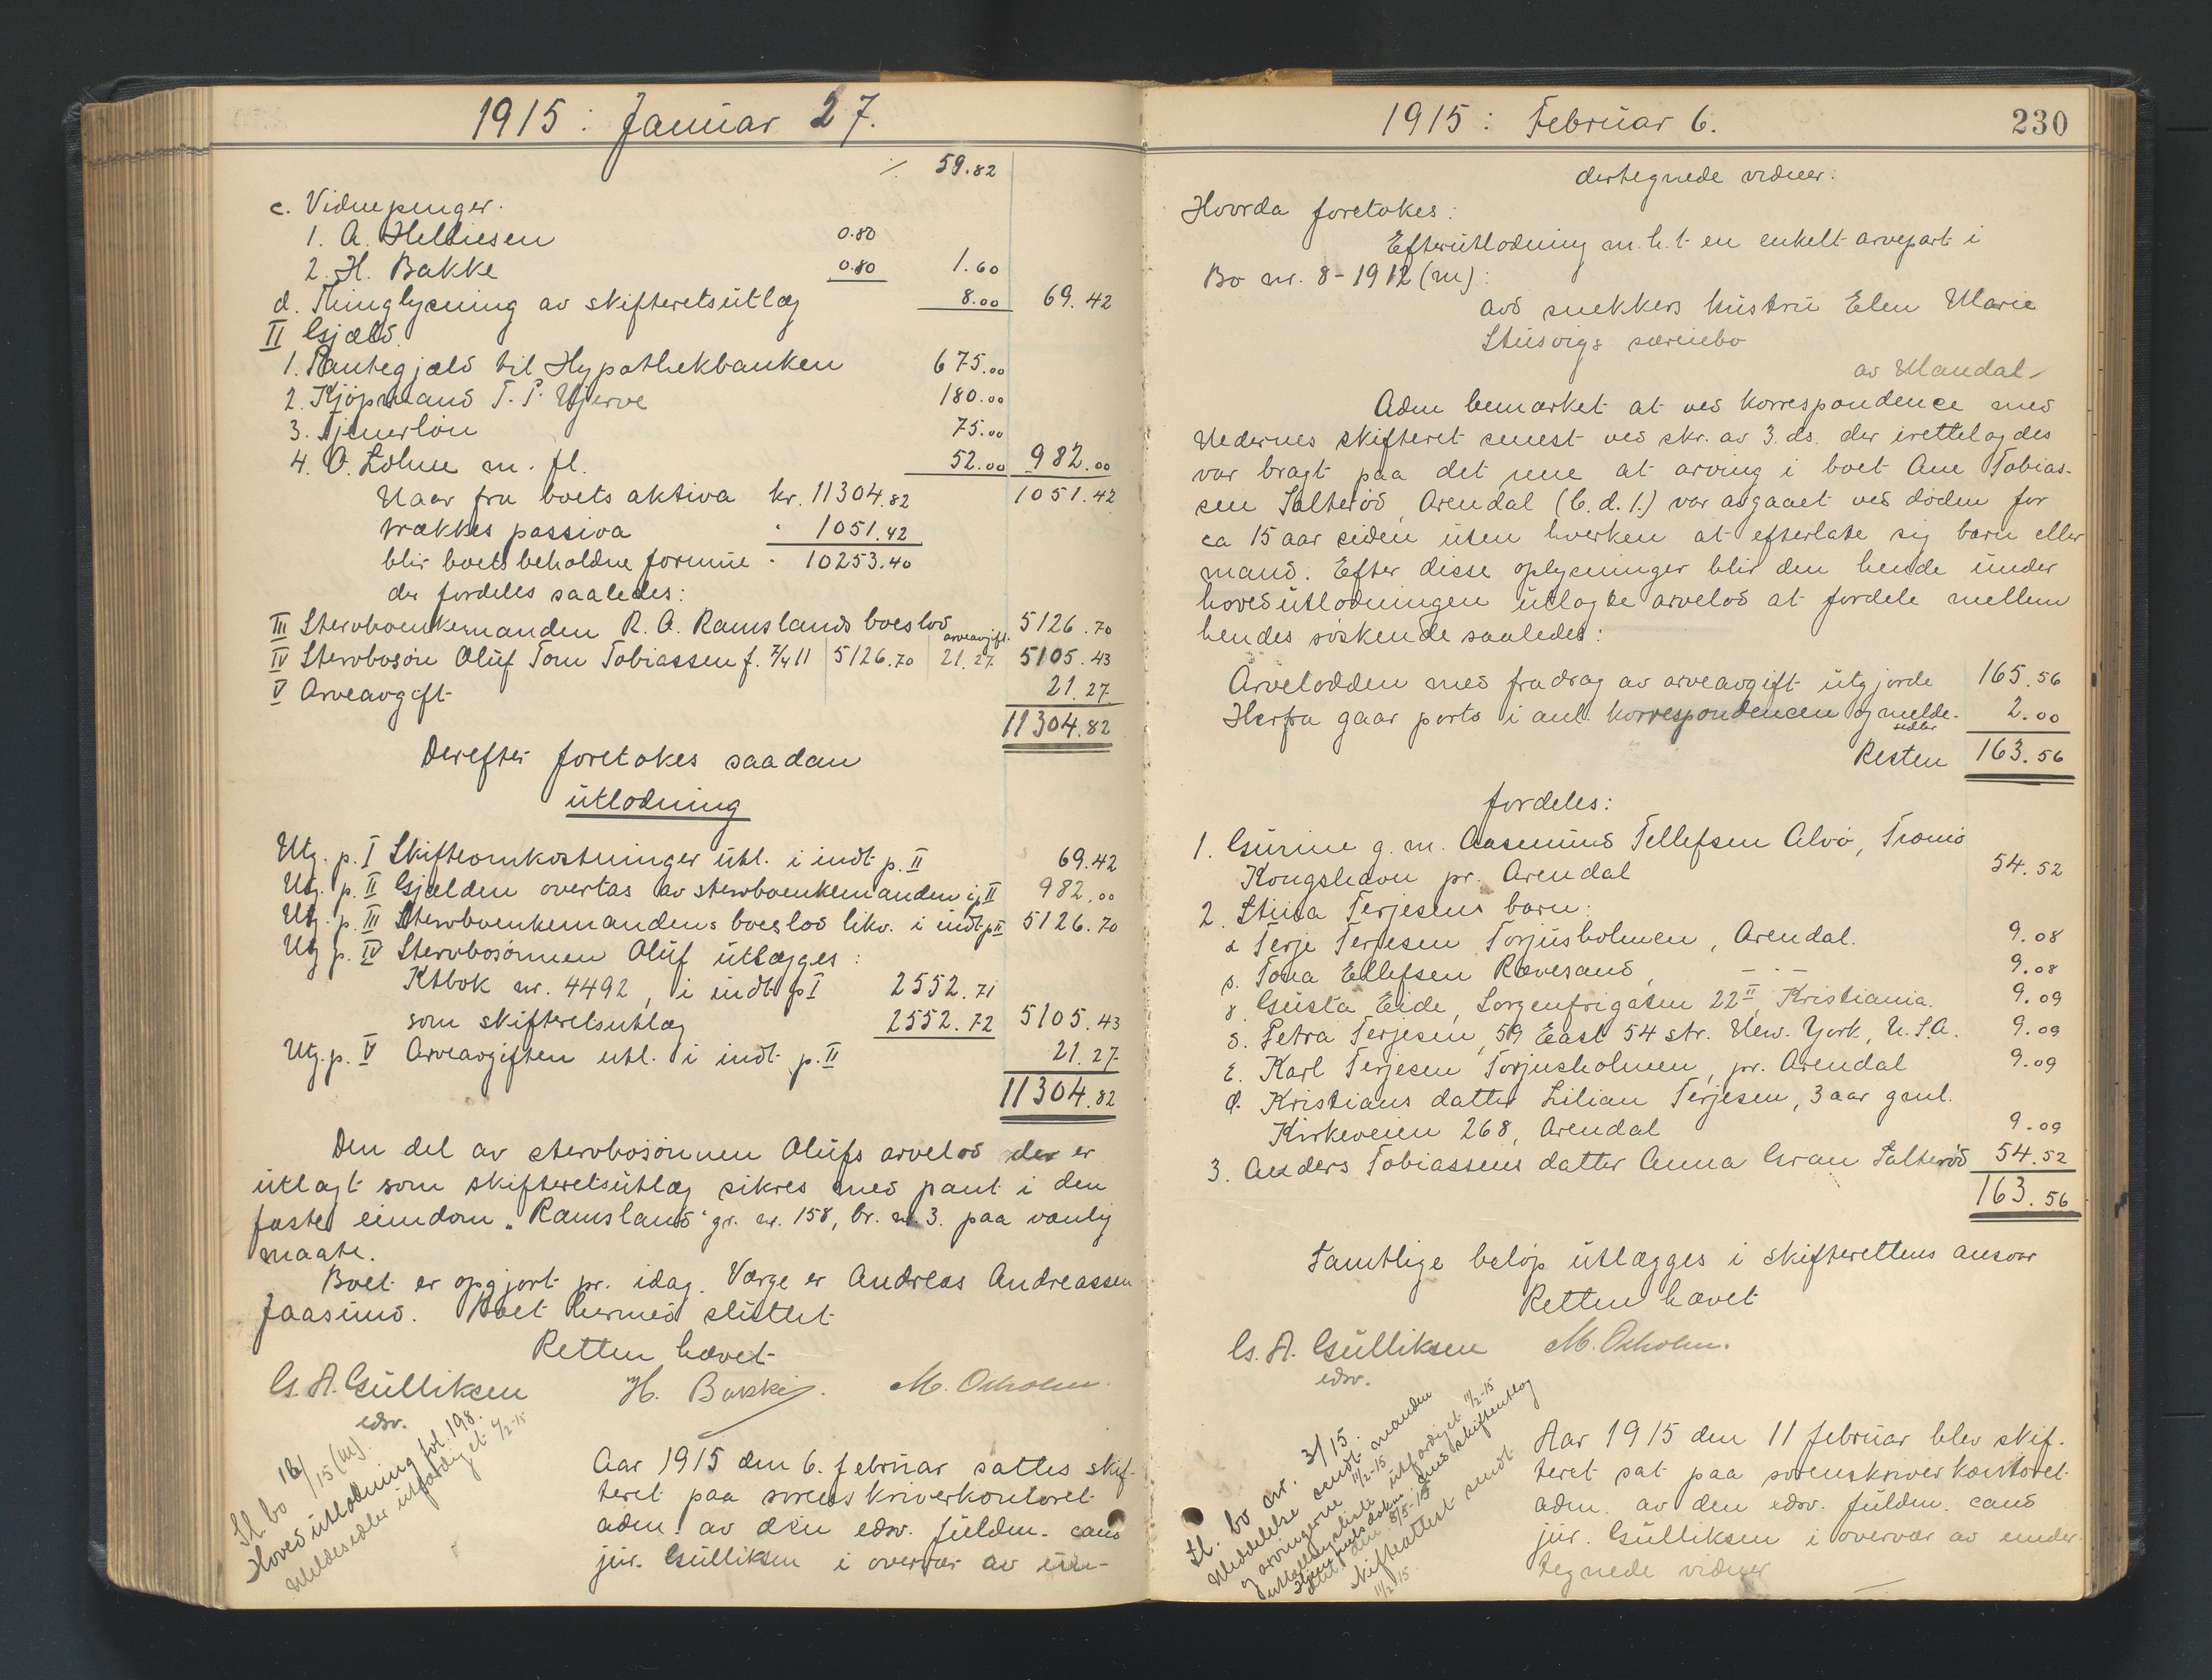 1915: Januar 27.
./. 59.82
c. Vidnepenger.
1. A. Heldiesen 0.80
2. H. Bakke 0.80 1.60
d. Thinglysning av skifteretsutlæg 8.00 69.42
II Gjæld.
1. Pantegjæld til Hypothekbanken 675.00
2. Kjöpmand T. P. Ujerve 180.00
3. Tjenerlön 75.00
4. O. Lohne m. fl. 52.00 982.00
Naar fra boets aktiva kr. 11304.82 1051.42
trækkes passiva " 1051.42
blir boets beholdne formue " 10253.40
der fordeles saaledes:
III Stervboenkemanden R. A. Ramslands boeslod 5126.70
arveavgift.
IV Stervbosön Oluf Tom Tobiassen f. 7/4 11 5126.70 21.27 5105.43
V Arveavgift 21.27
11304.82
Derefter foretokes saadan
utlodning
Utg. p. I Skifteomkostninger utl. i indt. p. II 69.42
Utg. p. II Gjælden overtas av stervboenkemanden i p II 982.00
Utg. p. III Stervboenkemandens boeslod likv. i indt p II 5126.70
Utg p. IV Stervbosönnen Oluf utlægges:
Ktbok nr. 4492, i indt p I 2552.71
som skifteretsutlæg 2552.72 5105.43
Utg. p. V Arveavgiften utl. i indt. p. II 21.27
11304.82
Den del av stervbosönnen Olufs arvelod der er
utlagt som skifteretsutlæg sikres med pant i den
faste eiendom "Ramsland" gr. nr. 158, br. nr. 3. paa vanlig
maate.
Boet er opgjort pr. idag. Værge er Andreas Andreassen
Jaasund. Boet hermed sluttet
Retten hævet
G. A. Gulliksen H. Bakke. M. Oxholm.
edsv.
Sl. bo 16/15 (m).
Hovedutlodning fol. 198.
Meldesedler utfærdiget 4/2-15
Aar 1915 den 6. februar sattes skif-
teret paa sorenskriverkontoret
adm. av den edsv. fuldm. cand
jur. Gulliksen i overvær av un-
1915: Februar 6. 230
dertegnede vidner:
Hvorda foretokes:
Efterutlodning m. h. t. en enkelt arvepart i
Bo nr. 8-1912 (m):
avd snekkers hustru Elen Marie
Stusvigs særiebo
av Mandal
Adm bemærket at ved korrespondence med
Nedernes skifteret senest ved skr. av 3. ds. der irettelagdes
var bragt paa det rene at arving i boet Ane Tobias-
sen Salteröd, Arendal (C. d. 1.) var avgaaet ved döden for
ca 15 aar siden uten hverken at efterlate sig barn eller
mand. Efter disse oplysninger blir den hende under
hovedutlodningen utlagte arvelod at fordele mellem
hendes söskende saaledes:
Arvelodden med fradrag av arveavgift utgjorde 165.56
Herfra gaar porto i anl. korrespondencen og melde-
sedler 2.00
Resten 163.56
fordeles:
1. Gurine g. m. Aasmund Tellefsen Alvö, Tromö
Kongshavn pr. Arendal 54.52
2. Stina Terjesens barn:
α Terje Terjesen Torjusholmen, Arendal. 9.08
β. Tona Ellefsen Rævesand, — " — 9.08
γ Gusta Eide, Sorgenfrigaten 22 II, Kristiania. 9.09
δ. Petra Terjesen, 59 East 54 str. New. York, U.S.A. 9.09
ε. Karl Terjesen Torjusholmen, pr. Arendal 9.09
d. Kristians datter Lilian Terjesen, 3 aar gml.
Kirkeveien 268, Arendal 9.09
3. Anders Tobiassens datter Anna Gran Salteröd 54.52
163.56
Samtlige belöp utlægges i skifterettens ansvar
Retten hævet
G. A. Gulliksen M. Oxholm.
edsv.
Sl. bo nr. 3/15.
Meddelelse sendt manden
og arvingerne 11/2-15
utfærdiget 11/2-15
Skifteattest sendt
11/2 15.
Aar 1915 den 11 februar blev skif-
teret sat paa sorenskriverkontoret
adm. av den edsv. fuldm. cand
jur. Gulliksen i overvær av under-
tegnede vidner